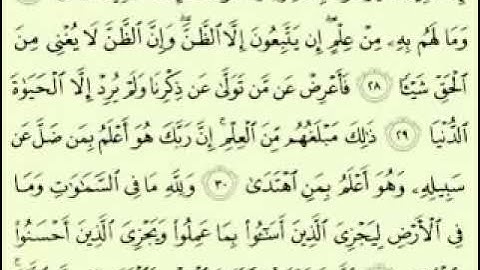 وَمَا لَهُم بِهِۦ مِنْ عِلْمٍ ۖ إِن يَتَّبِعُونَ إِلَّا ٱلظَّنَّ ۖ وَإِنَّ ٱلظَّنَّ لَا يُغْنِى مِنَ
ٱلْحَقِّ شَيْـًٔا ۝٢٨ فَأَعْرِضْ عَن مَّن تَوَلَّىٰ عَن ذِكْرِنَا وَلَمْ يُرِدْ إِلَّا ٱلْحَيَوٰةَ
ٱلدُّنْيَا ۝٢٩ ذَٰلِكَ مَبْلَغُهُم مِّنَ ٱلْعِلْمِ ۚ إِنَّ رَبَّكَ هُوَ أَعْلَمُ بِمَن ضَلَّ عَن
سَبِيلِهِۦ وَهُوَ أَعْلَمُ بِمَنِ ٱهْتَدَىٰ ۝٣٠ وَلِلَّهِ مَا فِى ٱلسَّمَٰوَٰتِ وَمَا
فِى ٱلْأَرْضِ لِيَجْزِىَ ٱلَّذِينَ أَسَٰٓـُٔوا۟ بِمَا عَمِلُوا۟ وَيَجْزِىَ ٱلَّذِينَ أَحْسَنُوا۟